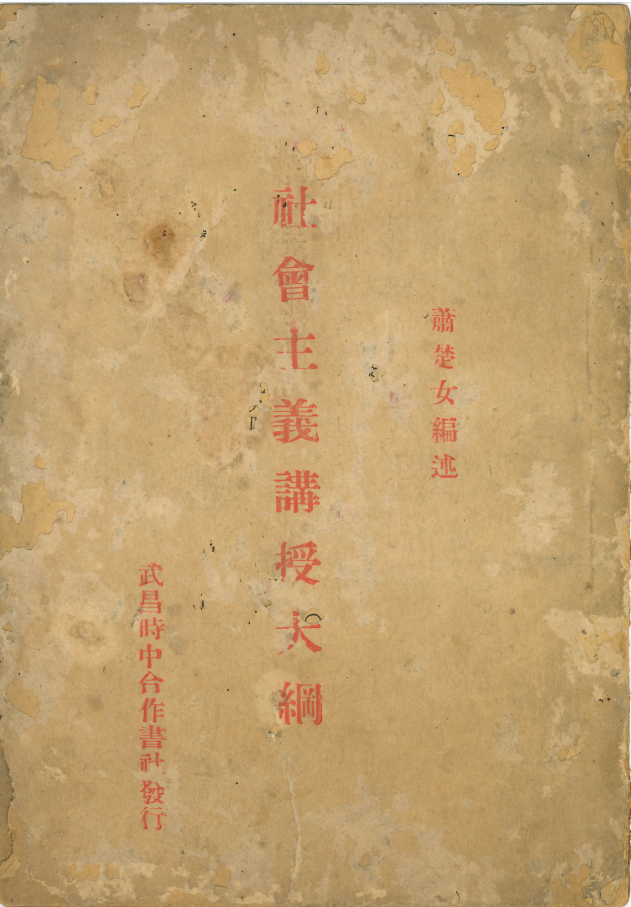 蕭楚女編述
社會主義講授大綱
武昌時中合作書社發行